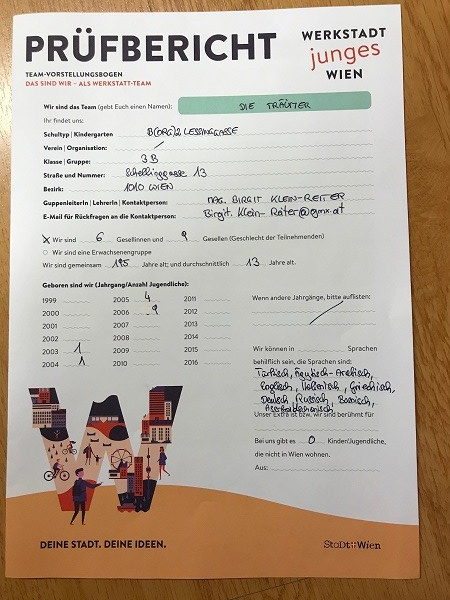 PRÜFBERICHT
WERKSTADT
junges
WIEN
TEAM-VORSTELLUNGSBOGEN
DAS SIND WIR – ALS WERKSTATT-TEAM
Wir sind das Team (gebt Euch einen Namen): DIE TRÄUMER
Ihr findet uns:
Schultyp | Kindergarten B(ORG)2 LESSINGGASSE
Verein | Organisation:
Klasse | Gruppe: 3B
Straße und Nummer: 13
Bezirk: 1010 WIEN
GuppenleiterIn | LehrerIn | Kontaktperson: MAG. BIRGIT KLEIN-REITER
E-Mail für Rückfragen an die Kontaktperson: Birgit.Klein-Reiter@gmx.at
X Wir sind 6 Gesellinnen und 9 Gesellen (Geschlecht der Teilnehmenden)
Wir sind eine Erwachsenengruppe
Wir sind gemeinsam 195 Jahre alt; und durchschnittlich 13 Jahre alt.
Geboren sind wir (Jahrgang/Anzahl Jugendliche):
1999 2005 4 2011
2000 2006 9 2012
2001 2007 2013
2002 2008 2014
2003 1 2009 2015
2004 1 2010 2016
Wenn andere Jahrgänge, bitte auflisten:
Wir können in Sprachen
behilflich sein, die Sprachen sind:
Türkisch, Ägyptisch-Arabisch,
Englisch, Italienisch, Griechisch,
Deutsch, Russisch, Bosnisch,
Aserbaidschanisch
Unser Extra ist bzw. wir sind berühmt für
Bei uns gibt es 0 Kinder/Jugendliche,
die nicht in Wien wohnen.
Aus:
DEINE STADT. DEINE IDEEN.
StaDt Wien